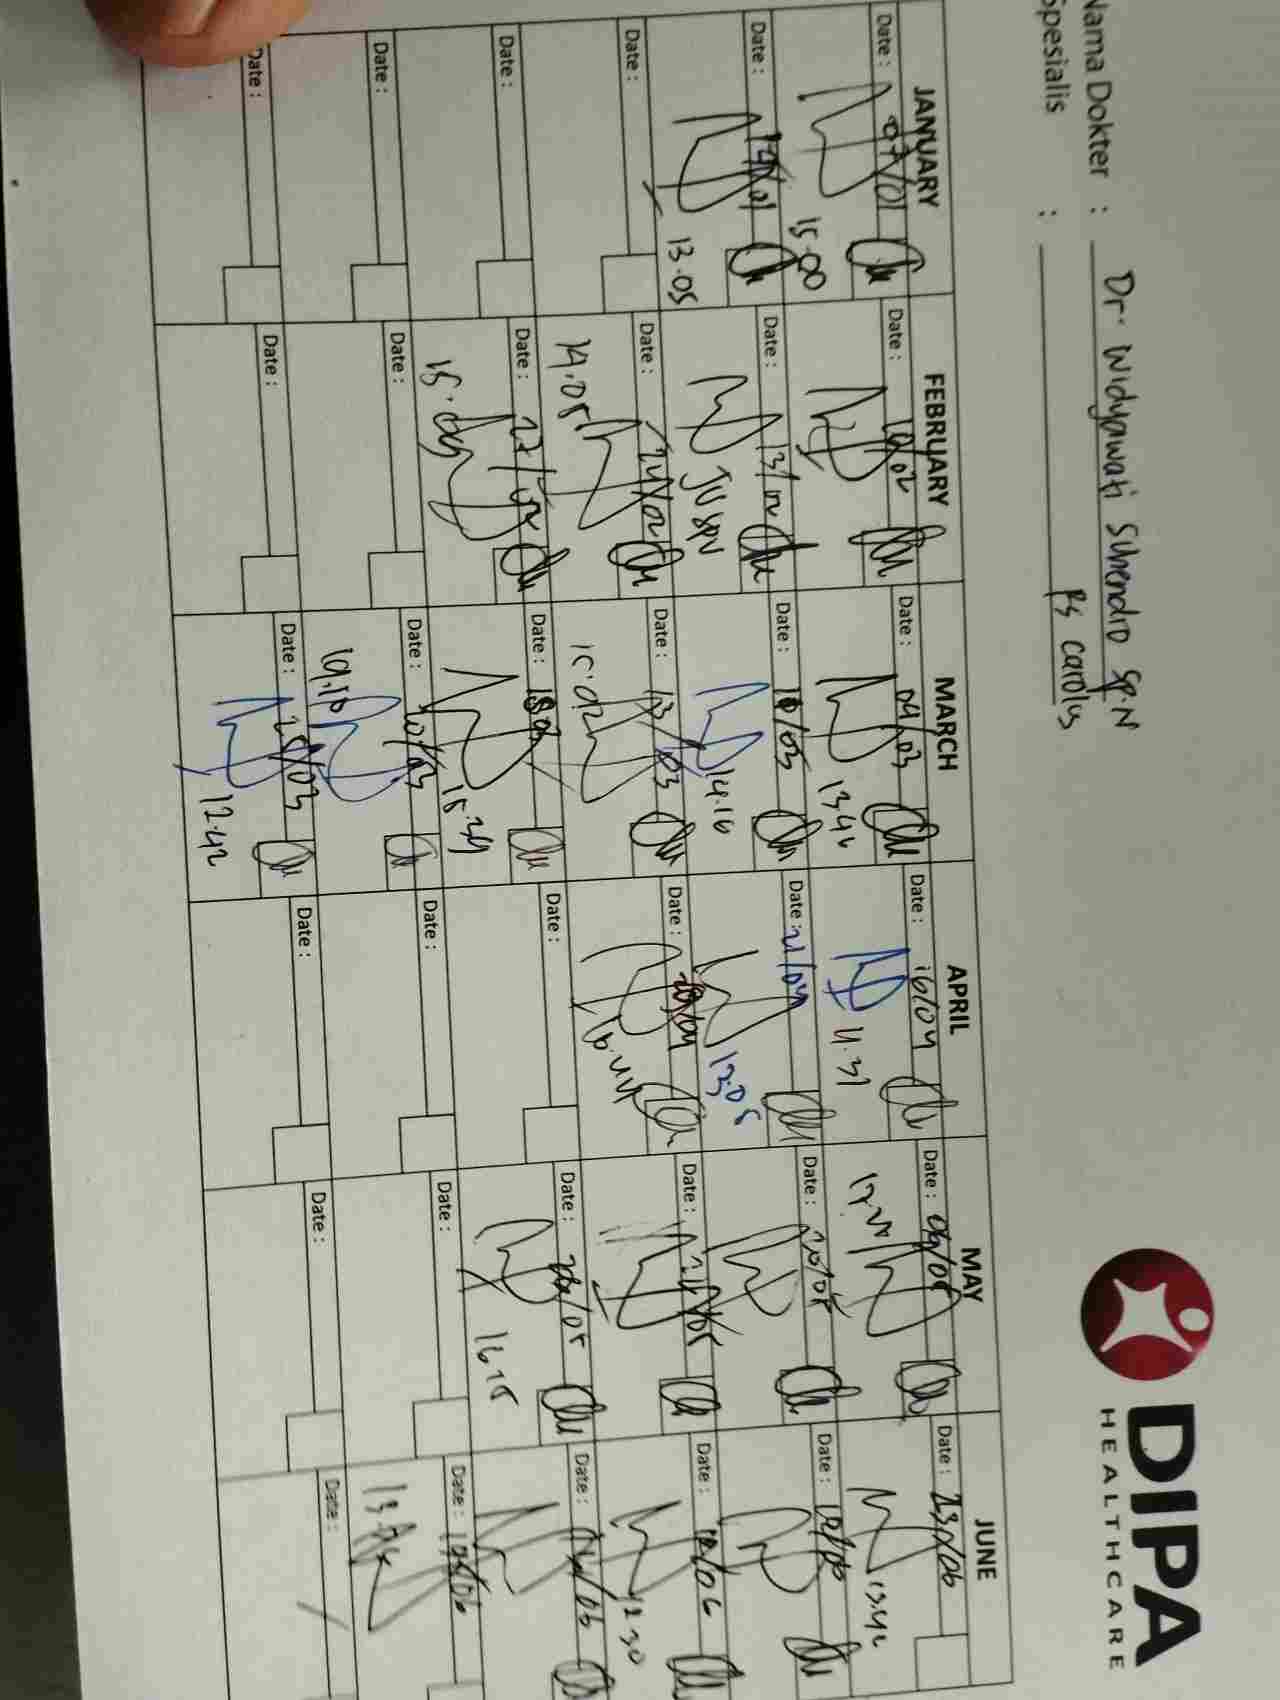 DIPA
HEALTHCARE
Nama Dokter : Dr. Widyawati Suhendro Sp.N
Spesialis : RS Carolus
JANUARY FEBRUARY MARCH APRIL MAY JUNE
Date : 07/01 Date : 10/02 Date : 04/03 Date : 16/04 Date : 09/05 Date : 23/06
15.00 13.42 11.37 13.42
Date : 14/01 Date : 13/02 Date : 10/03 Date : 21/04 Date : 20/05 Date :
13.05 JU SPV 14.16 13.05
Date : Date : 24/02 Date : 13/03 Date : Date : 21/05 Date : 12/06
14.05 15.02 12.30
Date : Date : 27/02 Date : 18/03 Date : Date : Date :
15.34 16.15
Date : Date : Date : 20/03 Date : Date : Date :
19.10
Date : Date : Date : 25/03 Date : Date : Date :
12.42